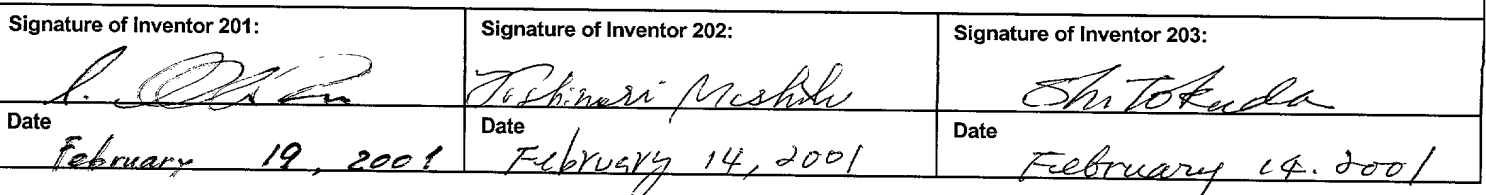 Signature of Inventor 201: Signature of Inventor 202: Signature of Inventor 203:
Toshinori Shi Tokuda
Date Date Date
February 19, 2001 February 14, 2001 February 14. 2001